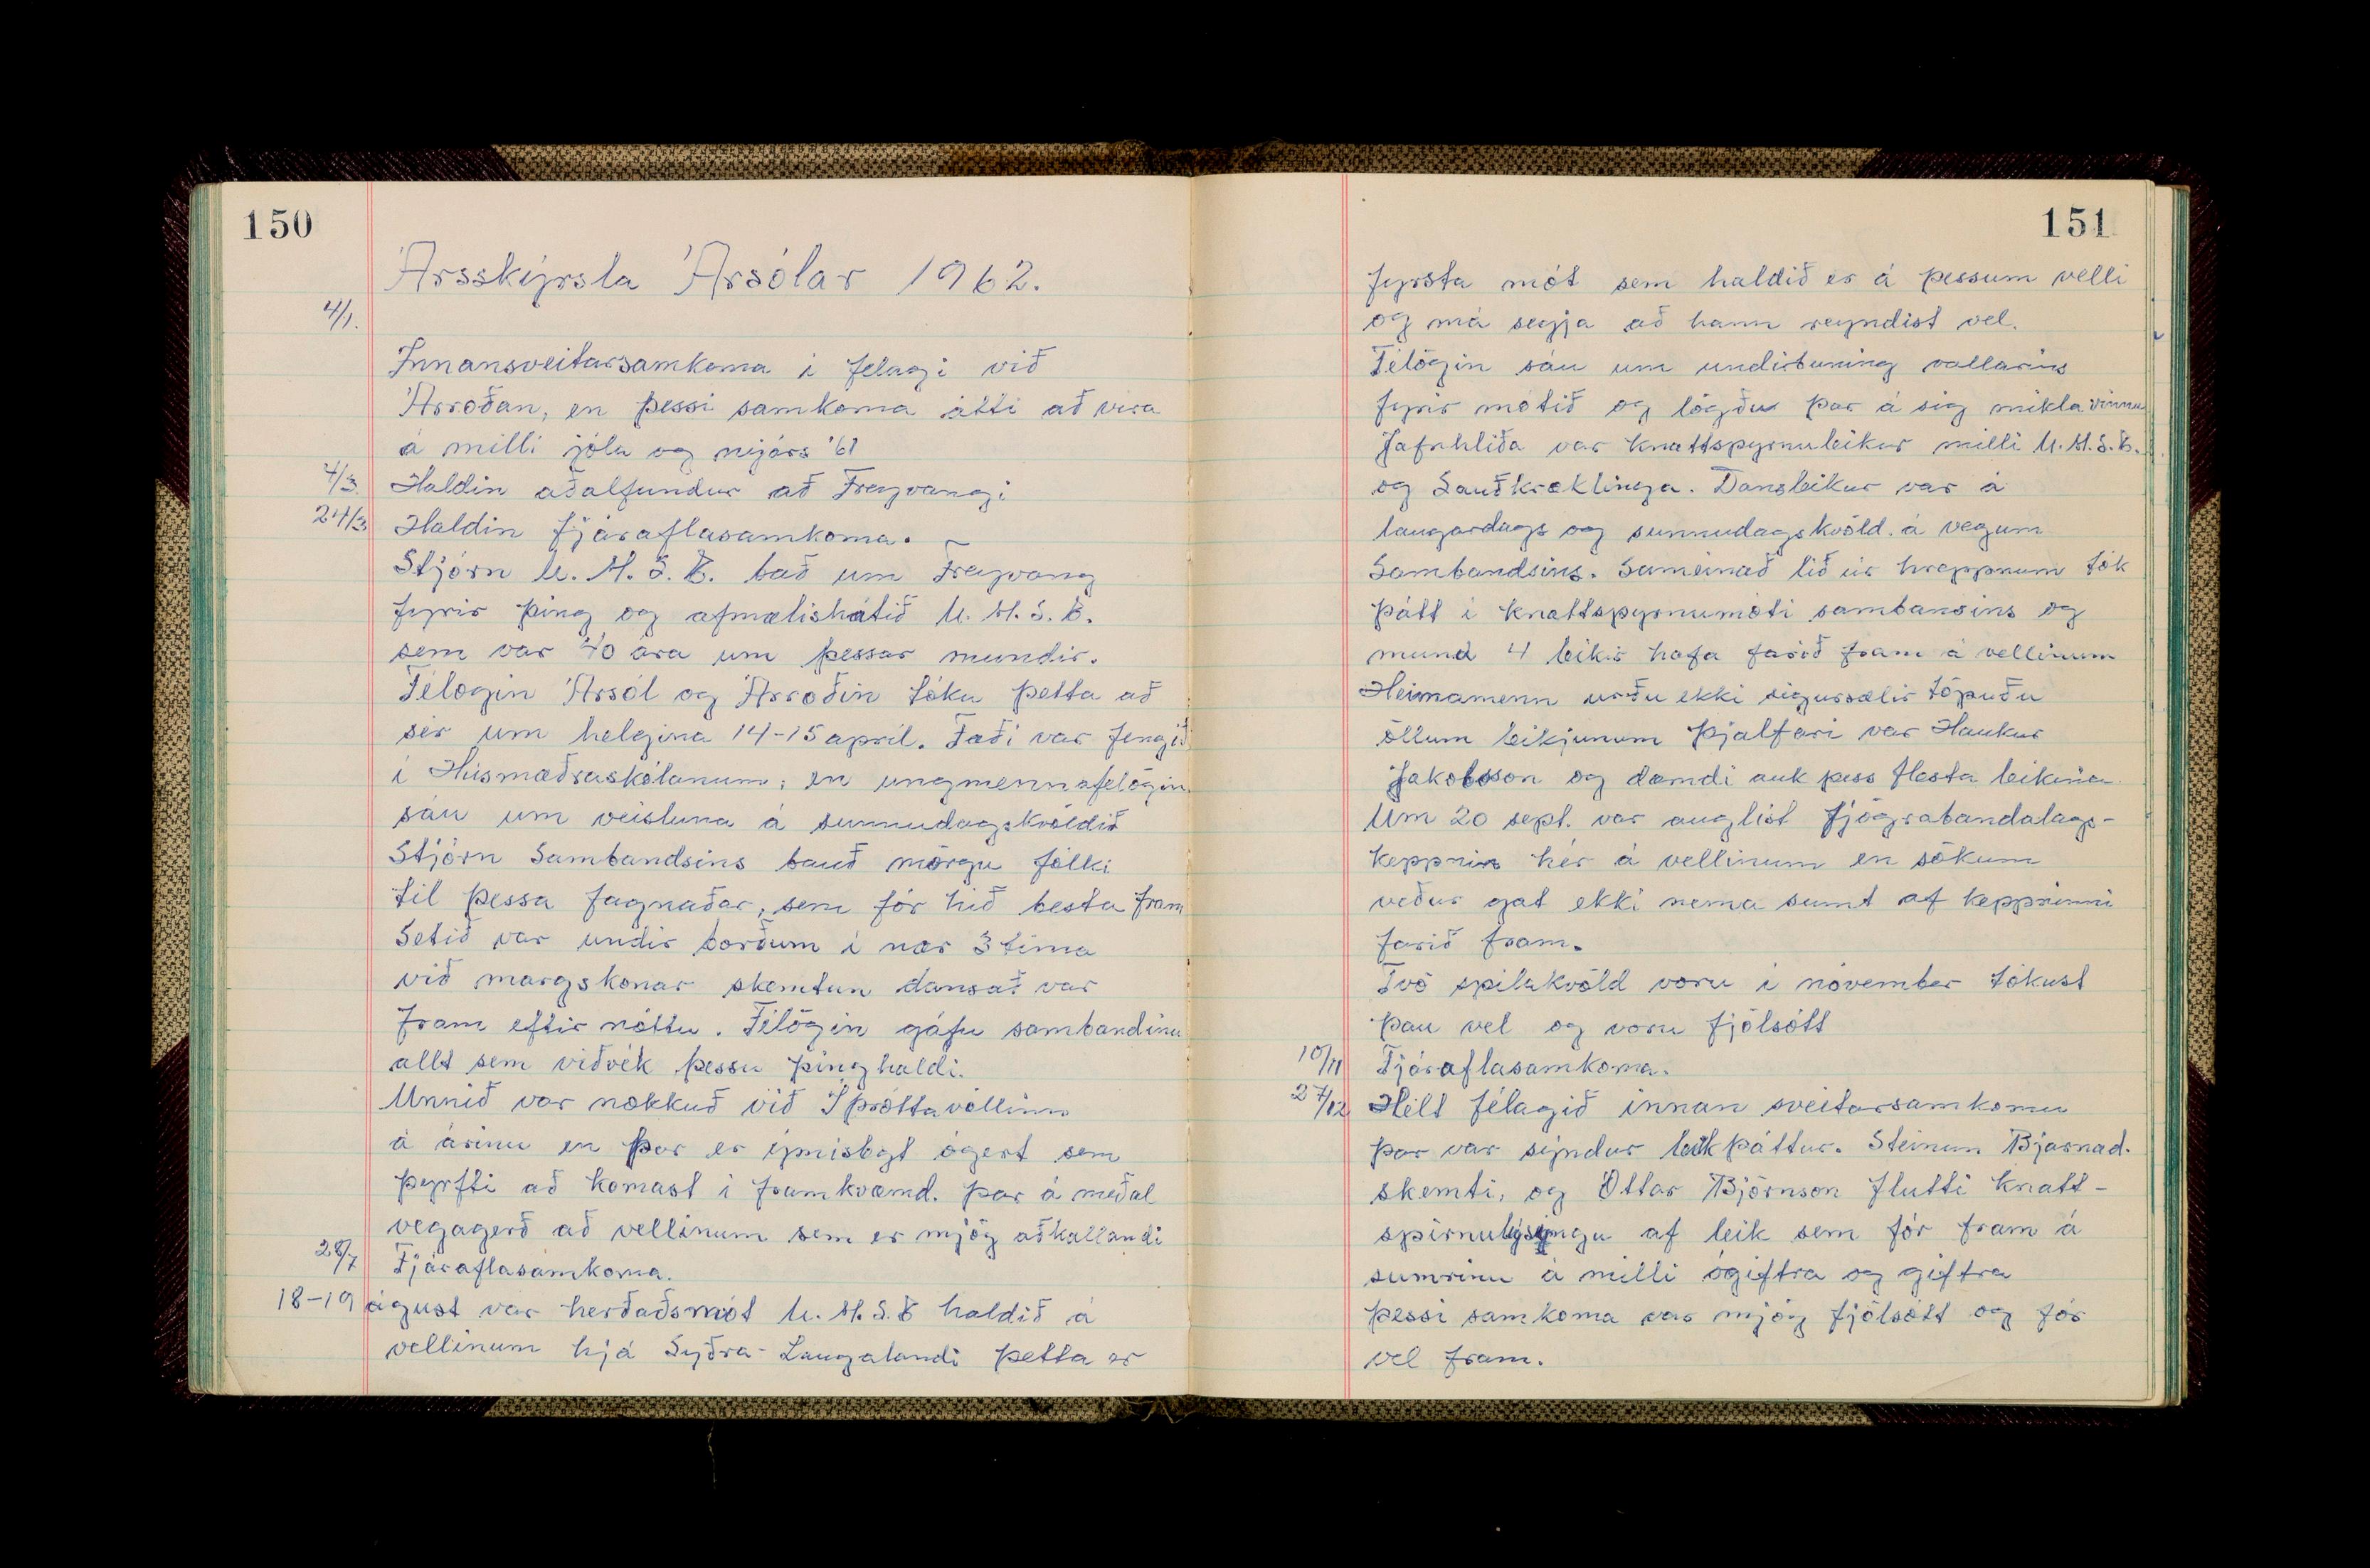 150
Ársskýrsla Ársólar 1962.
4/1.
Innansveitarsamkoma i felagi við
Árroðan, en þessi samkoma átti að vera
á milli jóla og nýjárs '61
4/3. Haldin aðalfundur að Freyvangi
24/3 Haldin fjáraflasamkoma.
Stjórn U. M. S. E. bað um Freyvang
fyrir þing og afmælishátið U. M. S. E.
sem var 40 ára um þessar mundir.
Félögin Ársól og Árroðin tóku þetta að
sér um helgina 14-15 april. Fæði var fengið
i Húsmæðraskólanum; en ungmennafelögin
sáu um veisluna á sunnudagskvöldið
Stjórn Sambandsins bauð mörgu fólki
til þessa fagnaðar, sem fór hið besta fram
Setið var undir borðum i nær 3 tima
við margskonar skemtun dansað var
fram eftir nóttu. Félögin gáfu sambandinu
allt sem viðvék þessu þinghaldi.
Unnið var nokkuð við Íþróttavöllinn
á árinu en þar er ýmislegt ógert sem
þyrfti að komast i framkvæmd. þar á meðal
vegagerð að vellinum sem er mjög aðkallandi
28/7 Fjáraflasamkoma.
18-19 ágúst var herðaðsmót U. M. S. E haldið á
vellinum hjá Syðra-Laugalandi þetta er
151
fyrsta mót sem haldið er á þessum velli
og má segja að hann reyndist vel.
Félögin sáu um undirbuning vallarins
fyrir mótið og lögðu þar á sig mikla vinnu
Jafnhliða var knattspyrnuleikur milli U. M. S. E.
og Sauðkræklinga. Dansleikur var á
laugardags og sunnudagskvöld. á vegum
Sambandsins. Sameinað lið úr hreppnum tók
þátt i knattspyrnumóti sambansins og
mund 4 leikir hafa farið fram á vellinum
Heimamenn urðu ekki sigursælir töpuðu
öllum leikjunum þjalfari var Haukur
Jakobsson og dæmdi auk þess flesta leikina
Um 20 sept. var auglist fjögrabandalags-
keppnin hér á vellinum en sökum
veður gat ekki nema sumt af keppninni
farið fram.
Tvö spilakvöld voru i nóvember tókust
þau vel og voru fjölsótt
10/11 Fjáraflasamkoma.
27/12 Hélt félagið innan sveitarsamkomu
þar var sýndur leikþáttur. Steinun Bjarnad.
skemti, og Óttar Björnson flutti knatt-
spirnulýsingu af leik sem fór fram á
sumrinu á milli ógiftra og giftra
þessi samkoma var mjög fjölsótt og fór
vel fram.